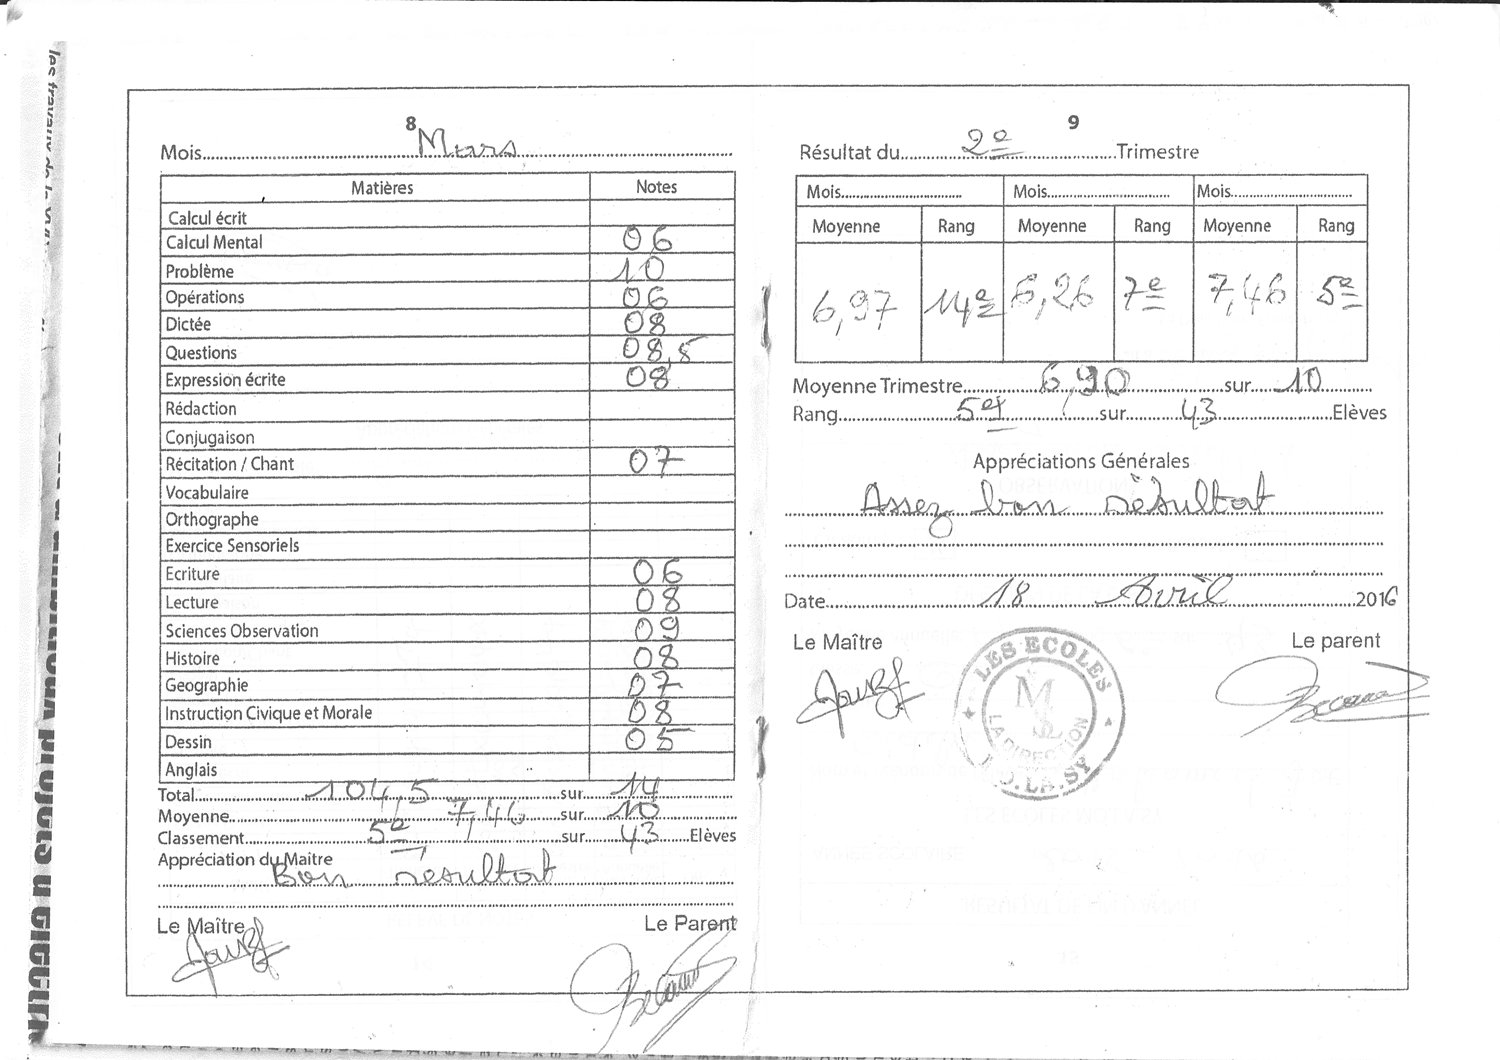 8
Mois Mars
Matières Notes
Calcul écrit
Calcul Mental 06
Problème 10
Opérations 06
Dictée 08
Questions 08,5
Expression écrite 08
Rédaction
Conjugaison
Récitation / Chant 07
Vocabulaire
Orthographe
Exercice Sensoriels
Ecriture 06
Lecture 08
Sciences Observation 09
Histoire 08
Geographie 07
Instruction Civique et Morale 08
Dessin 05
Anglais
Total 104,5 sur 14
Moyenne 7,46 sur 10
Classement 5e sur 43 Elèves
Appréciation du Maitre
Bon résultat
Le Maître Le Parent
9
Résultat du 2e Trimestre
Mois Mois Mois
Moyenne Rang Moyenne Rang Moyenne Rang
6,97 14e 6,26 7e 7,46 5e
Moyenne Trimestre 6,90 sur 10
Rang 5ex sur 43 Elèves
Appréciations Générales
Assez bon résultat
Date 18 Avril 2016
Le Maître Le parent
LES ECOLES
LA DIRECTION